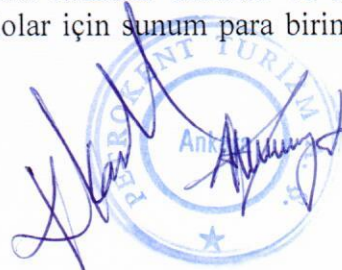 olar için sunum para birin
PETROKENT TURİZM A.Ş.
Ankara